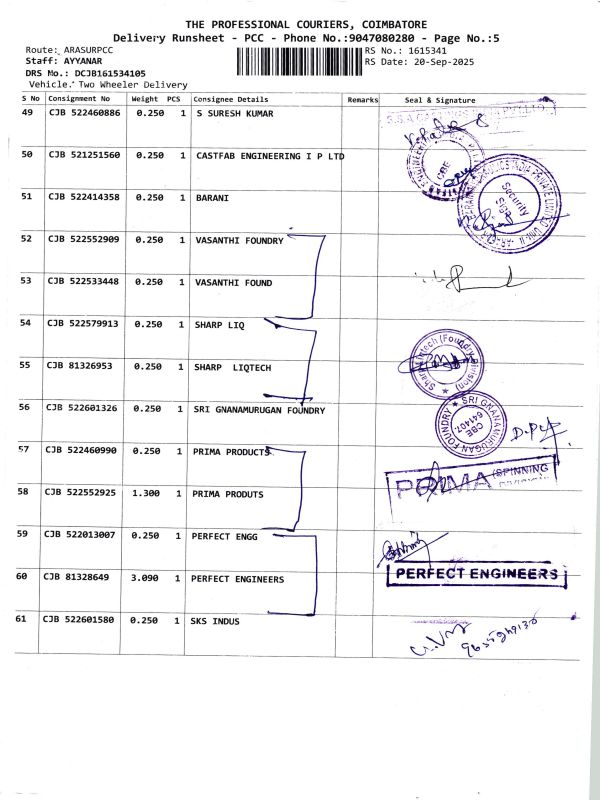 THE PROFESSIONAL COURIERS, COIMBATORE
Delivery Runsheet - PCC - Phone No.:9047080280 - Page No.:5
Route: ARASURPCC RS No.: 1615341
Staff: AYYANAR RS Date: 20-Sep-2025
DRS No.: DCJB161534105
Vehicle: Two Wheeler Delivery
S No Consignment No Weight PCS Consignee Details Remarks Seal & Signature
49 CJB 522460886 0.250 1 S SURESH KUMAR
50 CJB 521251560 0.250 1 CASTFAB ENGINEERING I P LTD
CBE
51 CJB 522414358 0.250 1 BARANI
Security
52 CJB 522552909 0.250 1 VASANTHI FOUNDRY
53 CJB 522533448 0.250 1 VASANTHI FOUND
54 CJB 522579913 0.250 1 SHARP LIQ
55 CJB 81326953 0.250 1 SHARP LIQTECH
56 CJB 522601326 0.250 1 SRI GNANAMURUGAN FOUNDRY
SRI GNANAMURUGAN FOUNDRY
CBE
641407
57 CJB 522460990 0.250 1 PRIMA PRODUCTS
PRIMA (SPINNING
58 CJB 522552925 1.300 1 PRIMA PRODUTS
59 CJB 522013007 0.250 1 PERFECT ENGG
60 CJB 81328649 3.090 1 PERFECT ENGINEERS
PERFECT ENGINEERS
61 CJB 522601580 0.250 1 SKS INDUS